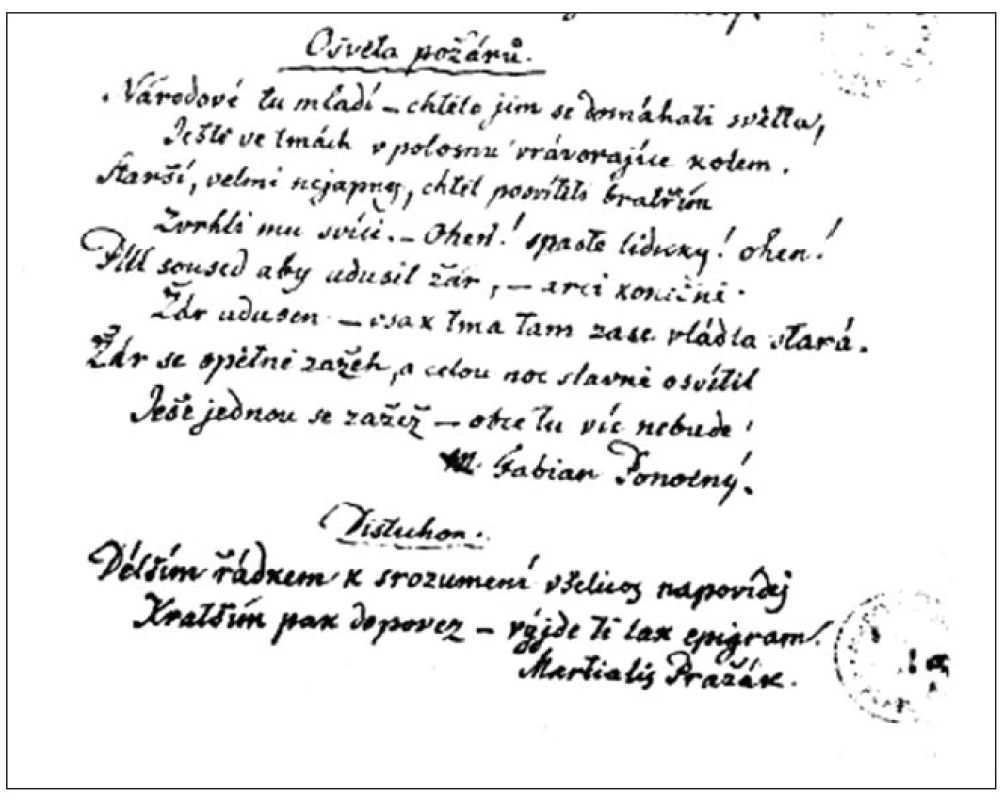 Osvěta požárů.
Národové tu mladí – chtělo jim se domáhati světla,
Ještě ve tmách v polosnu vrávorajíce kolem.
Starší, velmi nejapný, chtěl posvítiti bratřím
Zvrhli mu svíci. – Oheň! spaste lidičky! oheň!
Pílil soused aby udusil žár, – arci konečně.
Žár udušen – však tma tam zase vládla stará.
Žár se opětně zažeh, a celou noc slavně osvítil
Ješě jednou se zažež – obce tu víc nebude!
M. Fabian Ponocný.
Distichon.
Délším řádkem k srozumění všelicos napovídej
Kratším pak dopovez – výjde ti tak epigram.
Martialis Pražák.